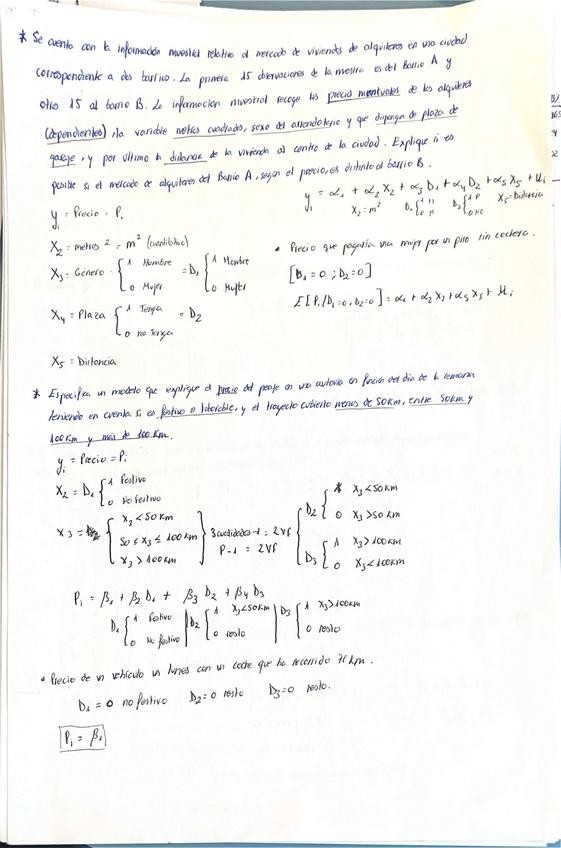 * Se cuenta con la información muestral relativa al mercado de viviendas de alquileres en una ciudad
correspondiente a dos barrios. La primera 15 observaciones de la muestra es del Barrio A y
otros 15 al barrio B. La información muestral recoge los precios mensuales de los alquileres
(dependientes), la variable metros cuadrados, sexo del arrendatario y que disponga de plaza de
garaje, y por último la distancia de la vivienda al centro de la ciudad. Explique si es
posible si el mercado de alquileres del Barrio A, según el precio, es distinto al barrio B.
yi = α1 + α2 X2 + α3 D1 + α4 D2 + α5 X5 + Ui
X2 = m² D1 { 1 H 0 M D2 { 1 P 0 NO X5 = Distancia
yi = Precio = Pi
X2 = metros² = m² (cuantitativa)
X3 = Género { 1 Hombre 0 Mujer = D1 { 1 Hombre 0 Mujer
X4 = Plaza { 1 Tenga 0 no tenga = D2
X5 = Distancia
• Precio que pagaría una mujer por un piso sin cochera.
[D1 = 0 ; D2 = 0]
E[Pi / D1 = 0, D2 = 0] = α1 + α2 X2 + α5 X5 + Ui
* Especifica un modelo que explique el precio del peaje en una autovía en función del día de la semana
teniendo en cuenta si es festivo o laborable, y el trayecto cubierto menos de 50km, entre 50km y
100 Km y más de 100 Km.
yi = Precio = Pi
X2 = D1 { 1 Festivo 0 No Festivo
X3 = { X3 < 50 Km 50 ≤ X3 ≤ 100 Km X3 > 100 Km } 3 cualidades - 1 = 2 VF P - 1 = 2 VF
D2 { 1 X3 < 50 Km 0 X3 > 50 Km
D3 { 1 X3 > 100 Km 0 X3 < 100 Km
Pi = β1 + β2 D1 + β3 D2 + β4 D3
D1 { 1 Festivo 0 No festivo | D2 { 1 X3 < 50 Km 0 resto | D3 { 1 X3 > 100 Km 0 resto
• Precio de un vehículo un lunes con un coche que ha recorrido 71 Km.
D1 = 0 no festivo D2 = 0 resto D3 = 0 resto.
Pi = β1